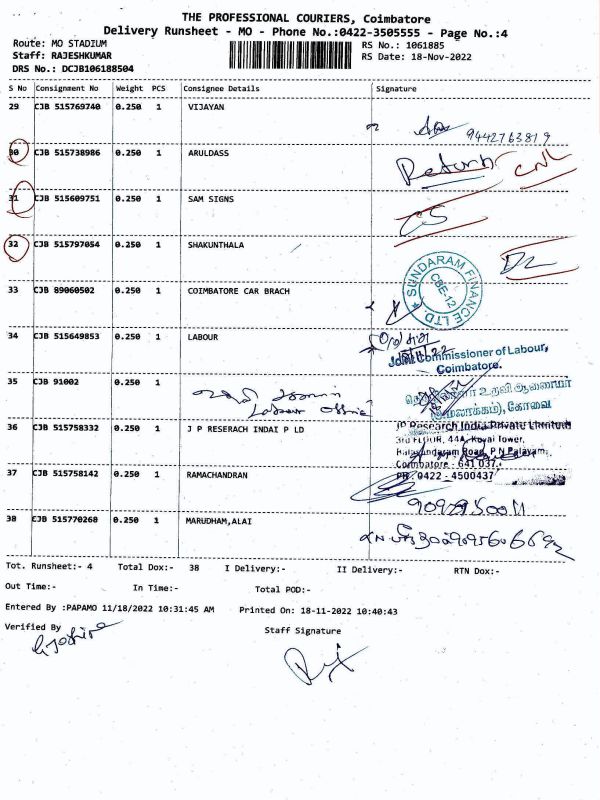 THE PROFESSIONAL COURIERS, Coimbatore
Delivery Runsheet - MO - Phone No.:0422-3505555 - Page No.:4
Route: MO STADIUM
RS No.: 1061885
Staff: RAJESHKUMAR
RS Date: 18-Nov-2022
DRS No.: DCJB106188504
S No Consignment No Weight PCS Consignee Details Signature
29 CJB 515769740 0.250 1 VIJAYAN
9442763819
30 CJB 515738986 0.250 1 ARULDASS
Return
31 CJB 515609751 0.250 1 SAM SIGNS
32 CJB 515797054 0.250 1 SHAKUNTHALA
SUNDARAM FINANCE LTD
CBE-12
33 CJB 89060502 0.250 1 COIMBATORE CAR BRACH
34 CJB 515649853 0.250 1 LABOUR
Joint Commissioner of Labour,
Coimbatore.
35 CJB 91002 0.250 1
Labour office
உதவி ஆணையர்
கோவை
36 CJB 515758332 0.250 1 J P RESERACH INDAI P LD
JP Research India Private Limited
3rd FLOOR, 44A, Kovai Tower,
Road, P N Palayam,
Coimbatore - 641 037.
PH: 0422 - 4500437
37 CJB 515758142 0.250 1 RAMACHANDRAN
38 CJB 515770260 0.250 1 MARUDHAM,ALAI
Tot. Runsheet:- 4 Total Dox:- 38 I Delivery:- II Delivery:- RTN Dox:-
Out Time:- In Time:- Total POD:-
Entered By :PAPAMO 11/18/2022 10:31:45 AM Printed On: 18-11-2022 10:40:43
Verified By
Staff Signature